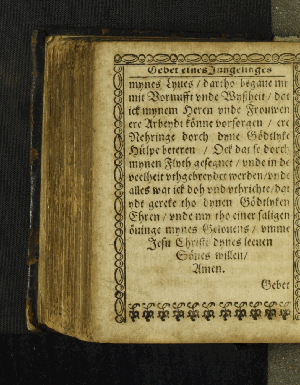 Gebet eines Jungelinges
mynes Lyues / dartho begaue my
mit Vornunfft vnde Wyßheit / dat
ick mynem Heren vnde Frouwen
ere Arbeydt könne vorsorgen / ere
Nehringe dorch dyne Gödtlyke
Hülpe beteren / Ock dat se dorch
mynen Flyth gesegnet / vnde in de
veelheit vthgebreydet werden / vnde
alles wat ick doh vnd vthrichte / dat
ydt gereke tho dynen Gödtlyken
Ehren / vnde my tho einer saligen
öuinge mynes Gelouens / vmme
Jesu Christi dynes leeuen
Sönes willen /
Amen.
Gebet